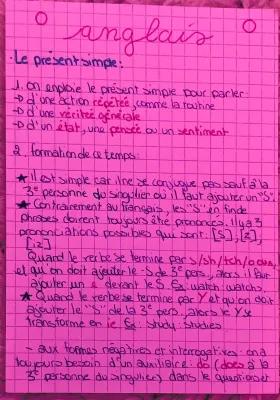 anglais
• Le présent simple:
1. On emploie le présent simple pour parler:
→ d'une action répétée, comme la routine
→ d'une vérité générale
→ d'un état, une pensée ou un sentiment
2. formation de ce temps:
★ Il est simple car il ne se conjugue pas sauf à la
3e personne du singulier où il faut ajouter un "S".
★ Contrairement au français, les "S" en fin de
phrases doivent toujours être prononcés. il y a 3
prononciations possibles qui sont: [S], [z],
[iz]
Quand le verbe se termine par s/sh/tch/o ou x,
et qu'on doit ajouter le -s de 3e pers, alors il faut
ajouter un e devant le S. Ex: watch: watches.
★ Quand le verbe se termine par Y et qu'on doit
ajouter le "S" de la 3e pers, alors le Y se
transforme en ie. Ex: study: studies
- aux formes négatives et interrogatives: on a
toujours besoin d'un auxiliaire: do (does à la
3e personne du singulier) dans le question et